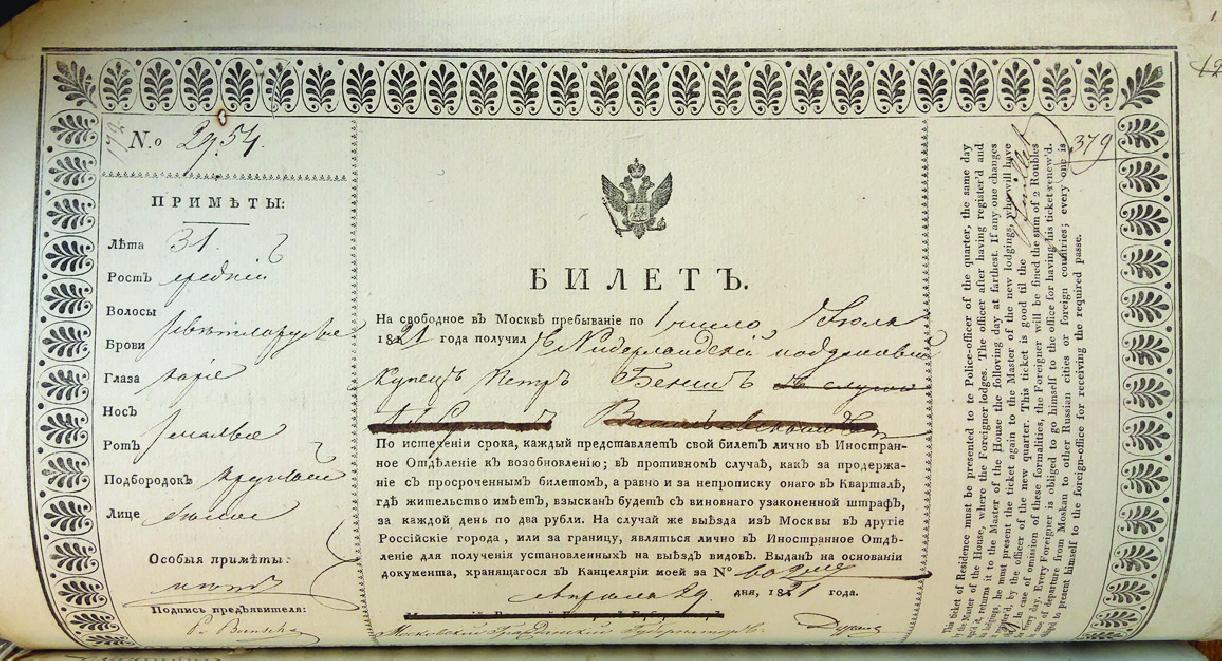 No. 2954.
ПРИМѢТЫ:
Лѣта 31.
Ростъ средній
Волосы
Брови свѣтлорусые
Глаза каріе
Носъ
Ротъ малые
Подбородокъ круглый
Лице
Особыя примѣты:
нѣтъ
Подпись предъявителя:
БИЛЕТЪ.
На свободное въ Москвѣ пребываніе по 1 число, Іюля
1821 года получил Нидерландскій подданный
Купецъ Петръ
По истеченіи срока, каждый представляетъ свой билетъ лично въ Иностран-
ное Отдѣленіе къ возобновленію; въ противномъ случаѣ, какъ за продержа-
ніе съ просроченнымъ билетомъ, а равно и за непрописку онаго въ Кварталѣ,
гдѣ жительство имѣетъ, взысканъ будетъ съ виновнаго узаконенной штрафъ,
за каждой день по два рубли. На случай же выѣзда изъ Москвы въ другіе
Россійскіе города, или за границу, являться лично въ Иностранное Отдѣ-
леніе для полученія установленныхъ на выѣздъ видовъ. Выданъ на основаніи
документа, хранящагося въ Канцеляріи моей за №
апрѣля 29 дня, 1821 года.
Московскій Гражданскій Губернаторъ
379
This ticket of Residence must be presented to te Police-officer of the quarter, the same day
by the Master of the House, where the Foreigner lodges. The officer after having register'd and
returns it to the Master of the House the following day at farthest. If any one changes
he must present the ticket again to the Master of the new lodgings, who will have
by the officer of the new quarter. This ticket is good til the
in case of omission of these formalities, the Foreigner will be fined the sum of 2 Roubles
every day. Every Foreigner is obliged to go himself to the office for having his ticket renew'd.
of departure from Moskau to other Russian cities or foreign countries; every one is
to present himself to the foreign-office for receiving the required passe.